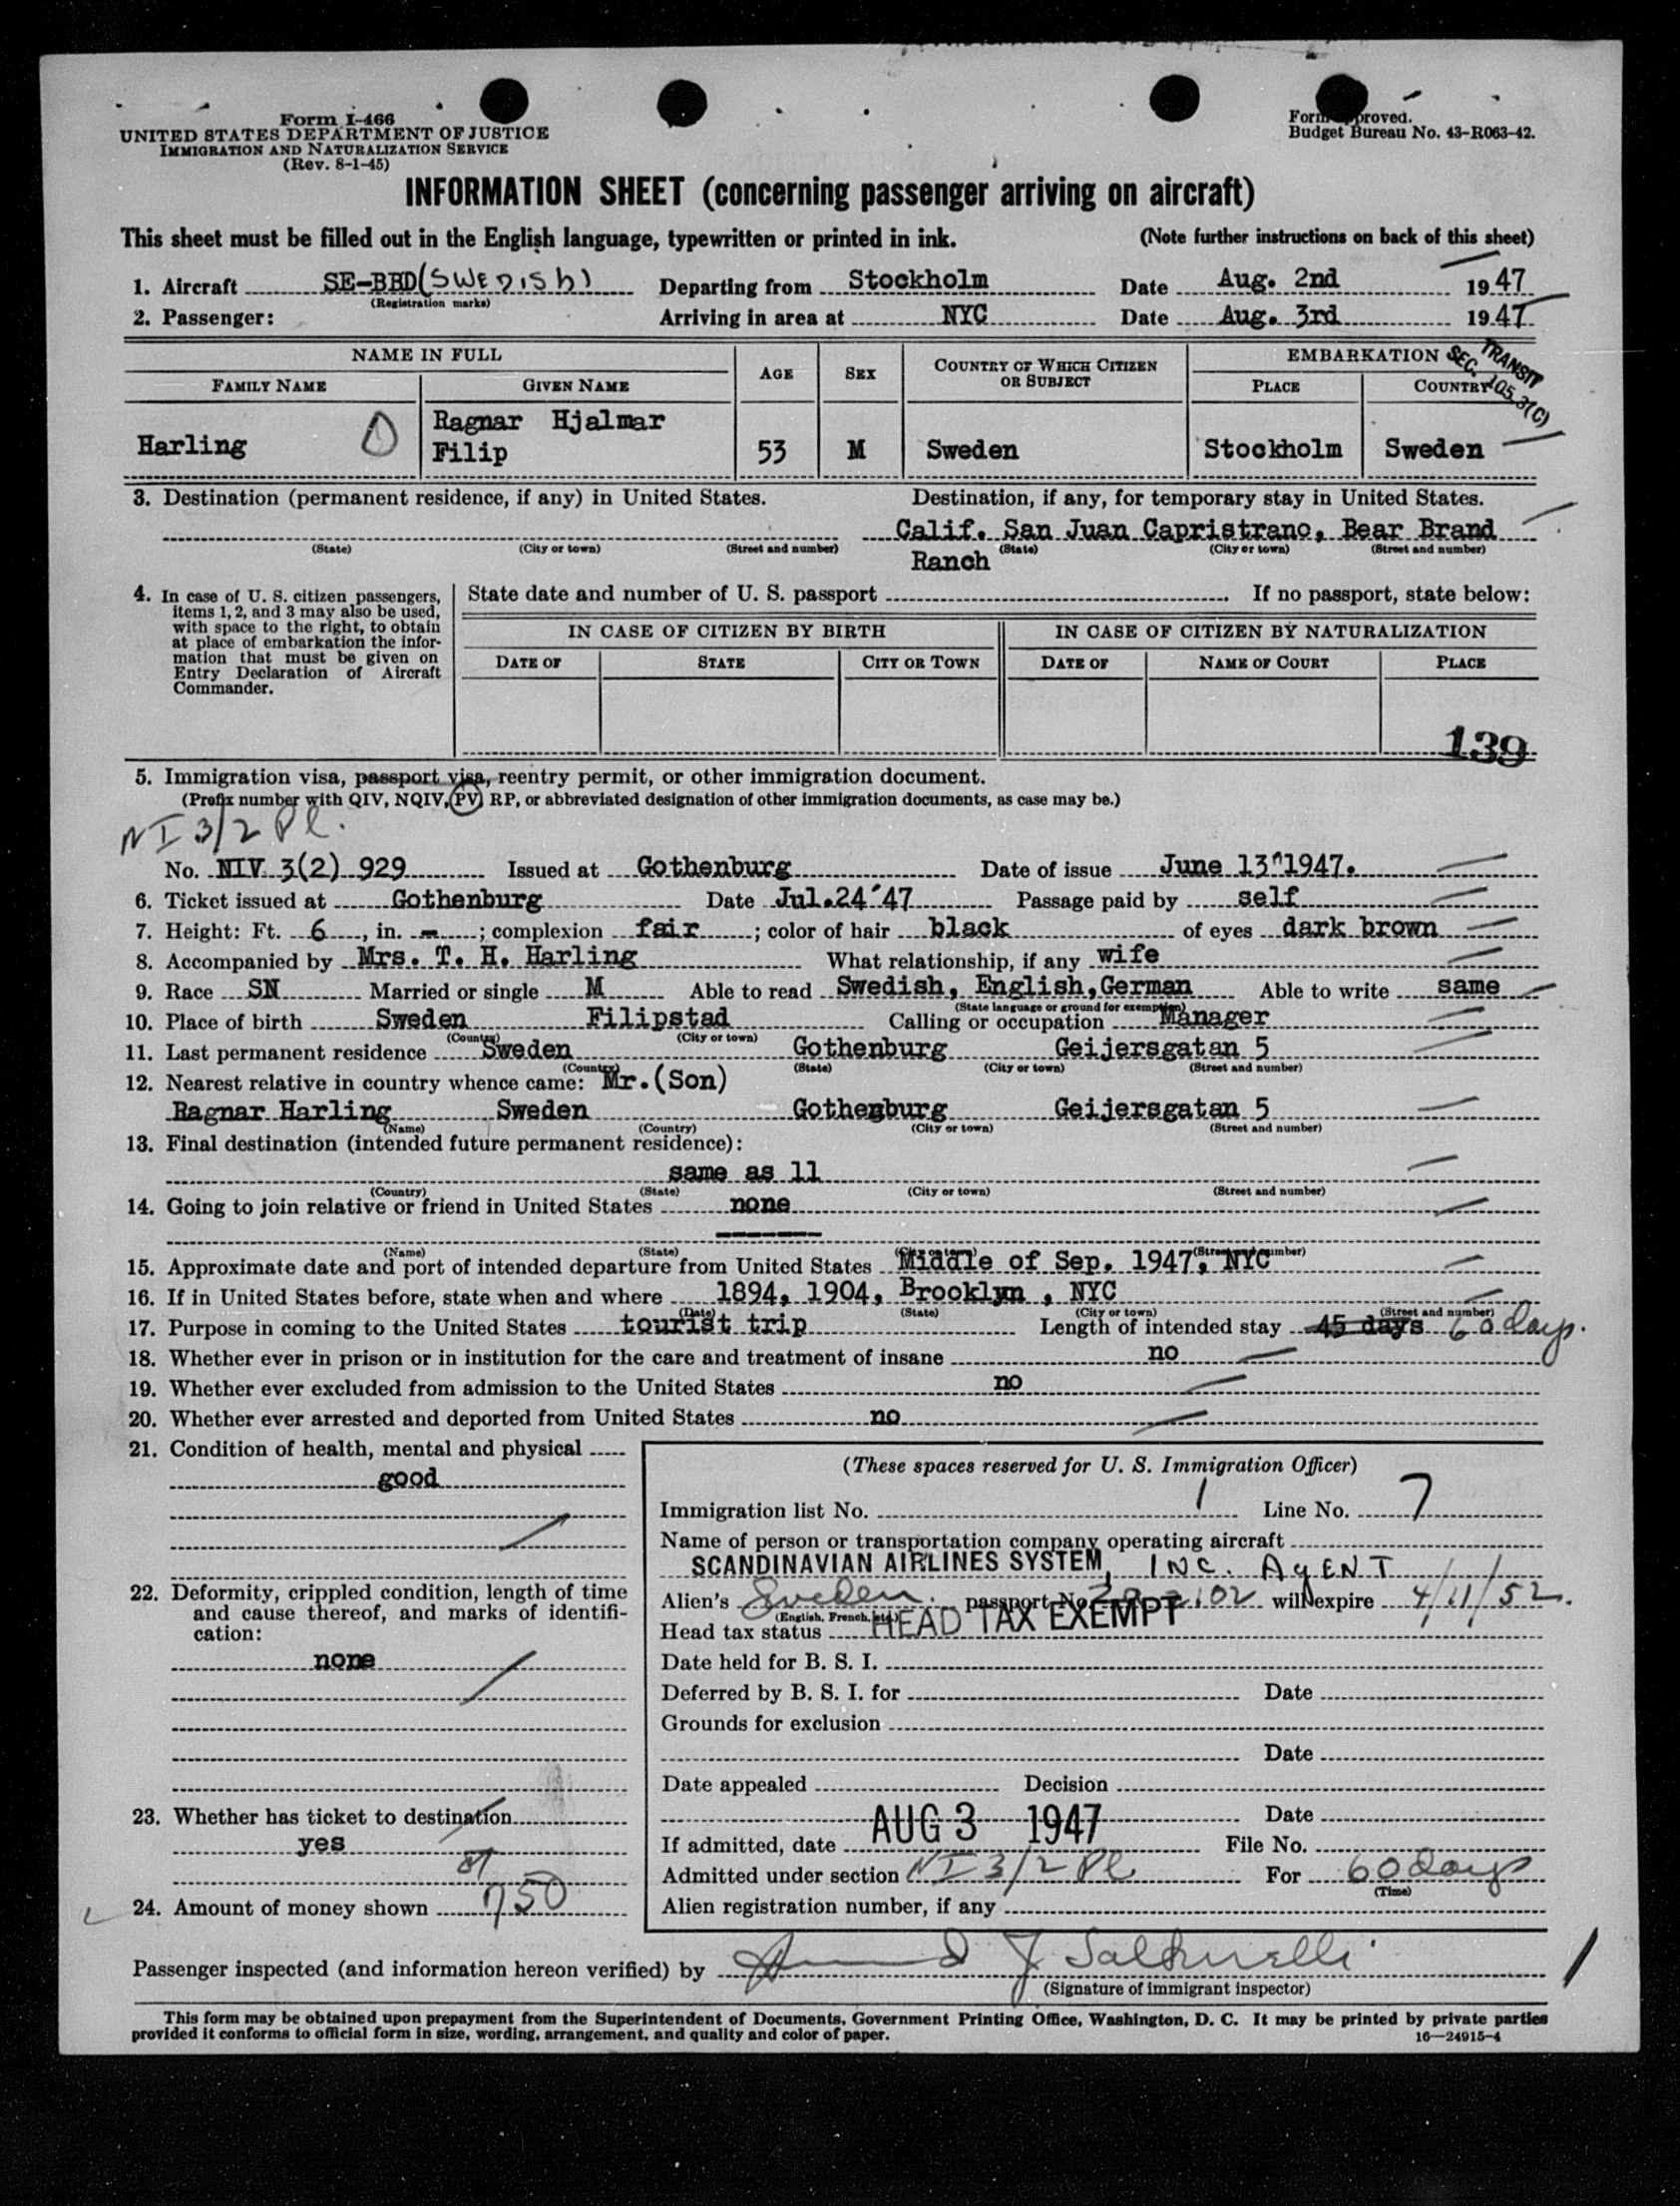 Form I-466
UNITED STATES DEPARTMENT OF JUSTICE
IMMIGRATION AND NATURALIZATION SERVICE
(Rev. 8-1-45)
Budget Bureau No. 43-R063-42.
INFORMATION SHEET (concerning passenger arriving on aircraft)
This sheet must be filled out in the English language, typewritten or printed in ink. (Note further instructions on back of this sheet)
1. Aircraft SE-BBD (SWEDISh) Departing from Stockholm Date Aug. 2nd 1947
(Registration marks)
2. Passenger: Arriving in area at NYC Date Aug. 3rd 1947
TRANSIT
SEC. 105.3(C)
NAME IN FULL AGE SEX COUNTRY OF WHICH CITIZEN OR SUBJECT EMBARKATION
FAMILY NAME GIVEN NAME PLACE COUNTRY
Ragnar Hjalmar
Harling Filip 53 M Sweden Stockholm Sweden
3. Destination (permanent residence, if any) in United States. Destination, if any, for temporary stay in United States.
Calif. San Juan Capristrano, Bear Brand
(State) (City or town) (Street and number) (State) (City or town) (Street and number)
Ranch
4. In case of U. S. citizen passengers, items 1, 2, and 3 may also be used, with space to the right, to obtain at place of embarkation the information that must be given on Entry Declaration of Aircraft Commander.
State date and number of U. S. passport If no passport, state below:
IN CASE OF CITIZEN BY BIRTH IN CASE OF CITIZEN BY NATURALIZATION
DATE OF STATE CITY OR TOWN DATE OF NAME OF COURT PLACE
139
5. Immigration visa, passport visa, reentry permit, or other immigration document.
(Prefix number with QIV, NQIV, PV, RP, or abbreviated designation of other immigration documents, as case may be.)
NI 3/2 Pl.
No. NIV 3(2) 929 Issued at Gothenburg Date of issue June 13" 1947.
6. Ticket issued at Gothenburg Date Jul. 24 '47 Passage paid by self
7. Height: Ft. 6, in. -; complexion fair; color of hair black of eyes dark brown
8. Accompanied by Mrs. T. H. Harling What relationship, if any wife
9. Race SN Married or single M Able to read Swedish, English, German Able to write same
(State language or ground for exemption)
10. Place of birth Sweden Filipstad Calling or occupation Manager
(Country) (City or town)
11. Last permanent residence Sweden Gothenburg Geijersgatan 5
(Country) (State) (City or town) (Street and number)
12. Nearest relative in country whence came: Mr. (Son)
Ragnar Harling Sweden Gothenburg Geijersgatan 5
(Name) (Country) (City or town) (Street and number)
13. Final destination (intended future permanent residence):
same as 11
(Country) (State) (City or town) (Street and number)
14. Going to join relative or friend in United States none
(Name) (State) (City or town) (Street and number)
15. Approximate date and port of intended departure from United States Middle of Sep. 1947, NYC
16. If in United States before, state when and where 1894, 1904, Brooklyn , NYC
(Date) (State) (City or town) (Street and number)
17. Purpose in coming to the United States tourist trip Length of intended stay 45 days 60 days.
18. Whether ever in prison or in institution for the care and treatment of insane no
19. Whether ever excluded from admission to the United States no
20. Whether ever arrested and deported from United States no
21. Condition of health, mental and physical
good
22. Deformity, crippled condition, length of time and cause thereof, and marks of identification:
none
23. Whether has ticket to destination
yes
24. Amount of money shown 750
(These spaces reserved for U. S. Immigration Officer)
Immigration list No. 1 Line No. 7
Name of person or transportation company operating aircraft
SCANDINAVIAN AIRLINES SYSTEM, INC. AgENT
Alien's Sweden passport No. will expire 4/11/52.
(English, French, etc.)
Head tax status HEAD TAX EXEMPT
Date held for B. S. I.
Deferred by B. S. I. for Date
Grounds for exclusion
Date
Date appealed Decision
Date
If admitted, date AUG 3 1947 File No.
Admitted under section NI 3/2 Pl. For 60 days
(Time)
Alien registration number, if any
Passenger inspected (and information hereon verified) by
(Signature of immigrant inspector)
This form may be obtained upon prepayment from the Superintendent of Documents, Government Printing Office, Washington, D. C. It may be printed by private parties
provided it conforms to official form in size, wording, arrangement, and quality and color of paper. 16—24915-4